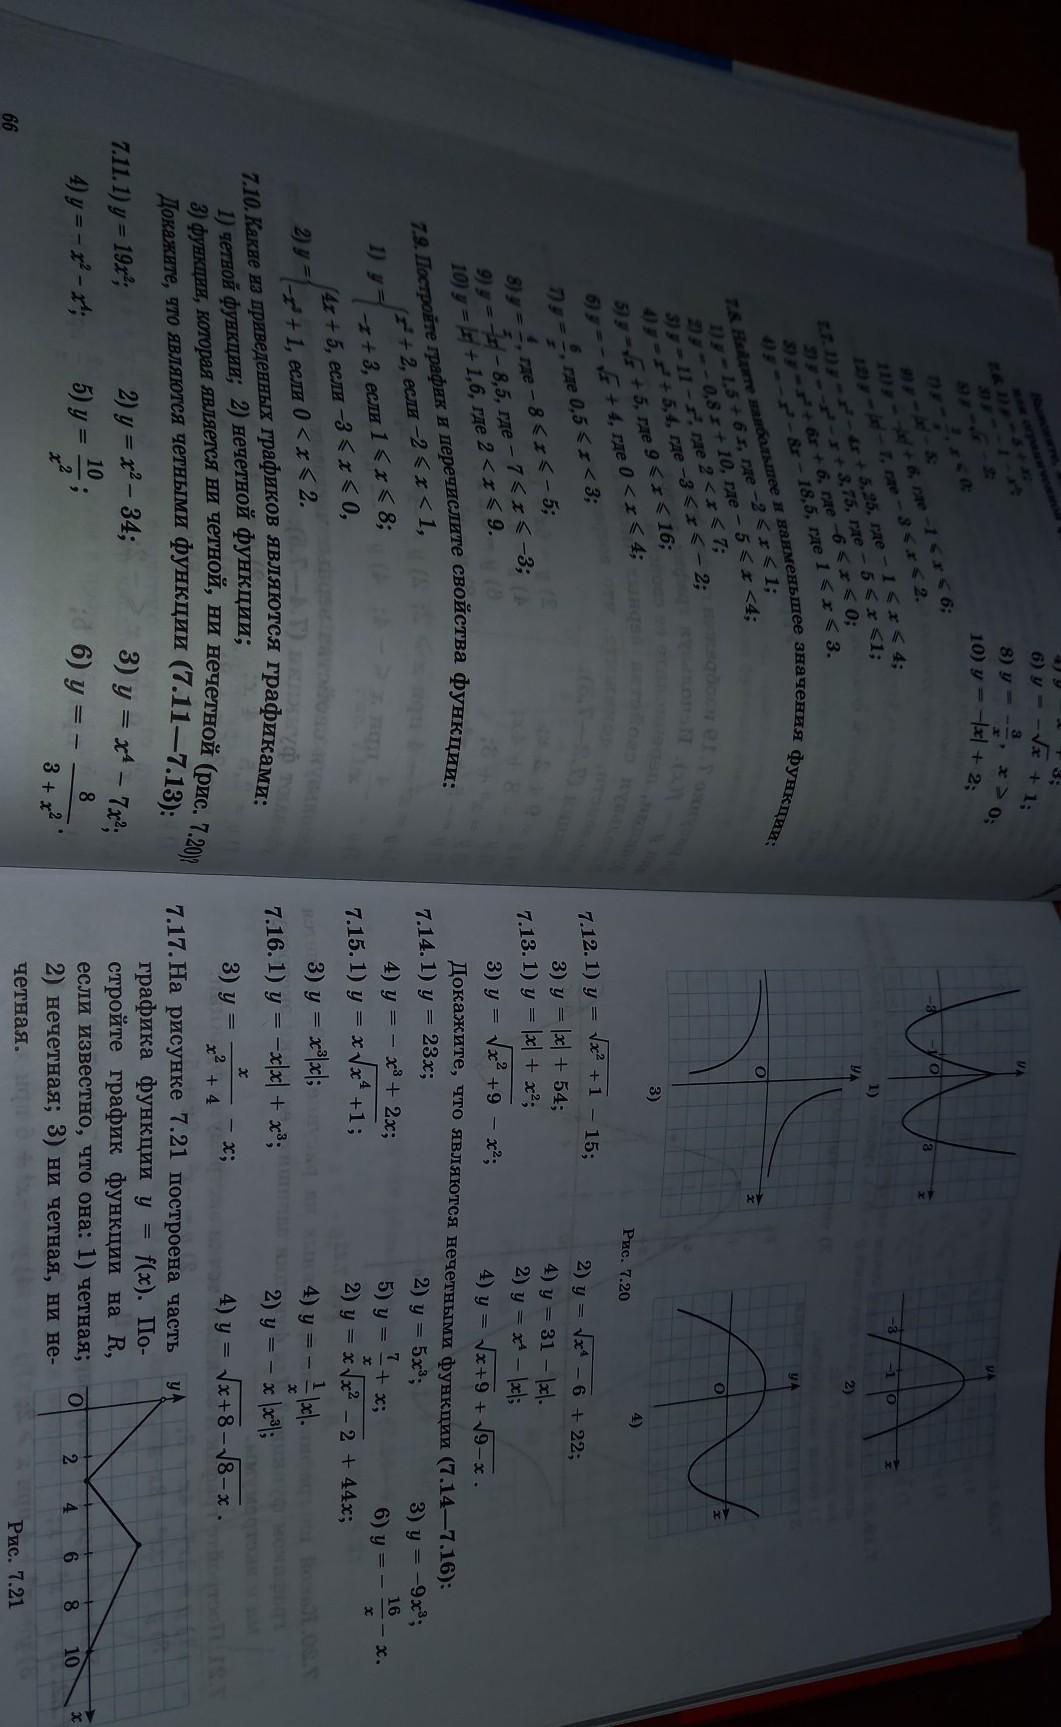 6) y = -√x + 1;
8) y = -3/x, x > 0;
10) y = -|x| + 2;
9) y = -|x| + 6, где -1 ⩽ x ⩽ 6;
11) y = -|x| - 7, где -3 ⩽ x ⩽ 2.
7.8. Найдите наибольшее и наименьшее значения функции:
1) y = 1,5 + 6x, где -2 ⩽ x ⩽ 1;
2) y = -0,8x + 10, где -5 ⩽ x < 4;
3) y = 11 - x², где 2 < x ⩽ 7;
4) y = x² + 5,4, где -3 ⩽ x ⩽ -2;
5) y = √x + 5, где 9 ⩽ x ⩽ 16;
6) y = -√x + 4, где 0 < x ⩽ 4;
7) y = 6/x, где 0,5 ⩽ x < 3;
8) y = -4/x, где -8 ⩽ x ⩽ -5;
9) y = -|x| - 8,5, где -7 ⩽ x ⩽ -3;
10) y = |x| + 1,6, где 2 < x ⩽ 9.
7.9. Постройте график и перечислите свойства функции:
1) y = { x² + 2, если -2 ⩽ x < 1,
-x + 3, если 1 ⩽ x ⩽ 8;
2) y = { 4x + 5, если -3 ⩽ x ⩽ 0,
-x² + 1, если 0 < x ⩽ 2.
7.10. Какие из приведенных графиков являются графиками:
1) четной функции; 2) нечетной функции;
3) функции, которая является ни четной, ни нечетной (рис. 7.20)?
Докажите, что являются четными функции (7.11—7.13):
7.11. 1) y = 19x²; 2) y = x² - 34; 3) y = x⁴ - 7x²;
4) y = -x² - x⁴; 5) y = 10/x²; 6) y = -8/(3 + x²).
66
y
-3 -1 O 3 x
1)
y
-3 -1 O x
2)
y
O x
3)
y
O x
4)
Рис. 7.20
7.12. 1) y = √(x² + 1) - 15; 2) y = √(x⁴ - 6) + 22;
3) y = |x| + 54; 4) y = 31 - |x|.
7.13. 1) y = |x| + x²; 2) y = x⁴ - |x|;
3) y = √(x² + 9) - x²; 4) y = √(x+9) + √(9-x).
Докажите, что являются нечетными функции (7.14—7.16):
7.14. 1) y = 23x; 2) y = 5x³; 3) y = -9x³;
4) y = -x³ + 2x; 5) y = 7/x + x; 6) y = -16/x - x.
7.15. 1) y = x√(x⁴ + 1); 2) y = x√(x² - 2) + 44x;
3) y = x³|x|; 4) y = -1/x|x|.
7.16. 1) y = -x|x| + x³; 2) y = -x|x³|;
3) y = x/(x² + 4) - x; 4) y = √(x+8) - √(8-x).
7.17. На рисунке 7.21 построена часть
графика функции y = f(x). По-
стройте график функции на R,
если известно, что она: 1) четная;
2) нечетная; 3) ни четная, ни не-
четная.
y
O 2 4 6 8 10 x
Рис. 7.21